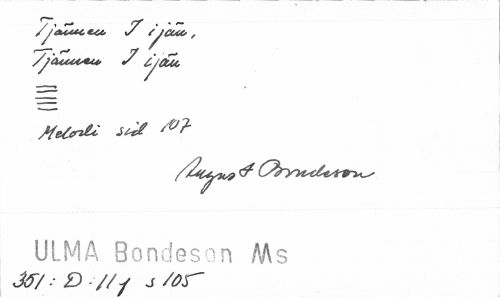 Tjännen I ijän,
Tjännen I ijän
Melodi sid 107
August Bondeson
ULMA Bondeson Ms
351: D: 11 y s 105